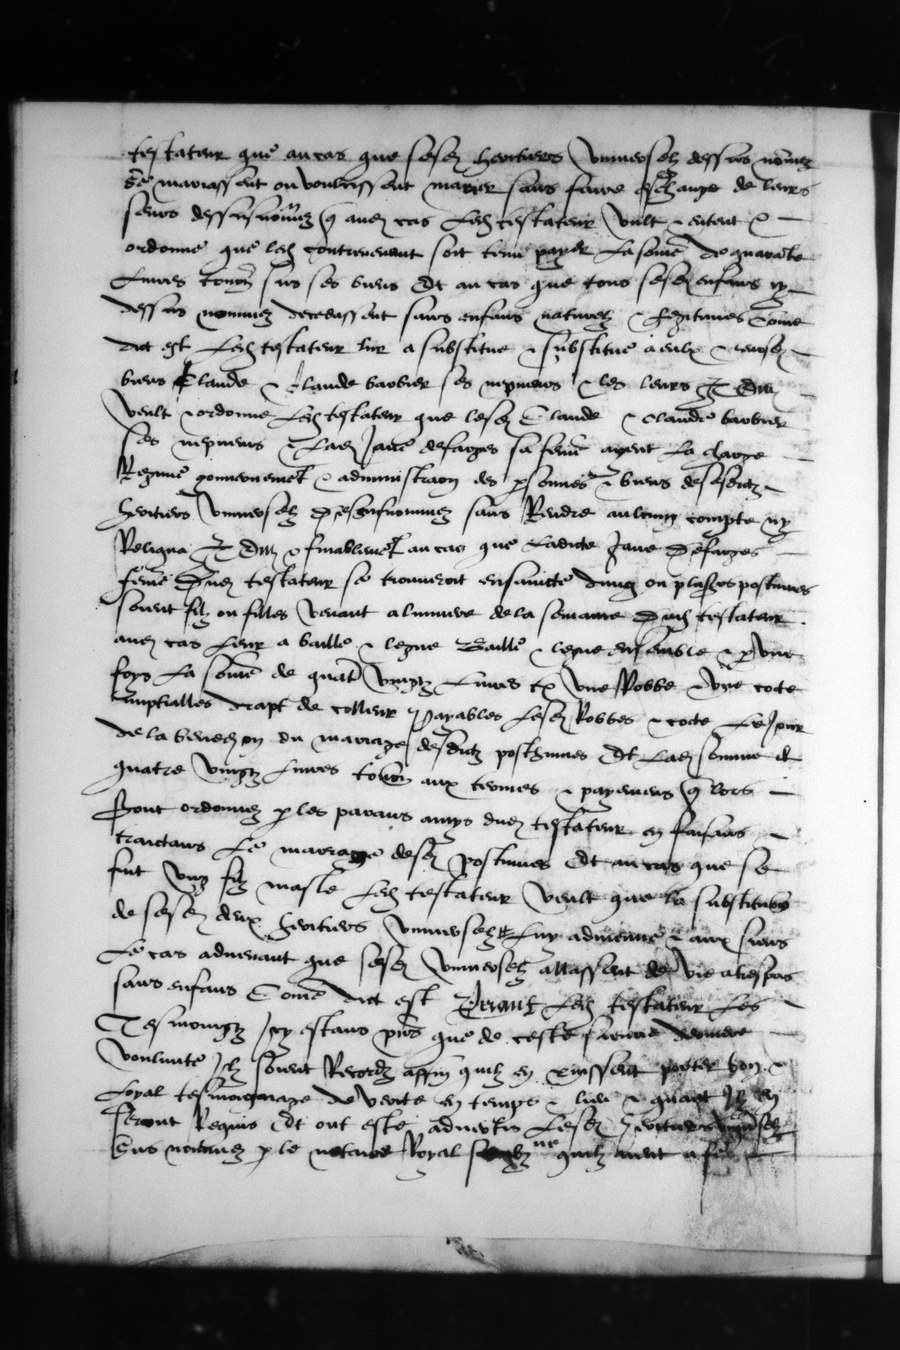 testateur que au cas que sesd heritiers universelz dessus nomez
se mariassent ou voulcissent marier sans faire eschange de leurs
seurs dessusnomez q aud cas led testateur vult & entent &
ordonne que led contrevenant soit tenu payer la some de quarate
livres tourn sus ses biens Et au cas que tous sesd enfans cy
dessus nommez decedassent sans enfans naturelz & legitimes come
dict est led testateur leur a substitue & substitue a eulx & leursd
biens Claude & Claude barbier ses nepveus & les leurs Itr
veult & ordonne led testateur que lesd Claude & Claude barbier
ses nepveus & lad Jane desarges sa feme ayent la charge
Regime gouvernemet & administraon des psonnes & biens desesditz
heritiers universelz dessusnommez sans Rendre aulcung compte ny
Reliqua Itr & finablemet au cas que ladicte Jane desarges
feme dud testateur se trouveroit ensaincte dung ou plusrs postumes
soient filz ou filles venant a lumiere de la semance dud testateur
aud cas leur a baille & legue baille & legue ensemble & p une
foys la some de quatre vingtz livres tz une Robbe & une cote
nuptialles drapt de colleur payables lesd Robbes & cote le jour
de la benedion du mariage desditz posthumes Et lad somme de
quatre vingtz livres tourn aux termes & payemens q lors
seront ordonnez p les parans amys dud testateur en faisans
traictans le mariage desd postumes Et au cas que se
fut ung filz masle led testateur veult que la substituon
de sesd deux heritiers universelz luy advienne & aux siens
Le cas advenant que sesd universelz allassent de vie a trespas
sans enfans Come dict est Priant led testateur les
Tesmoingtz icy estans pns que de ceste sienne derniere
voulunte ilz soient Recordz affin quilz en puissent porter bon &
loyal tesmoignage de verite en temps & lieu & quant ilz en
seront Requis Et ont este advertis lesd heritiers universelz
sus nommez p le notaire Royal quilz aient a fe